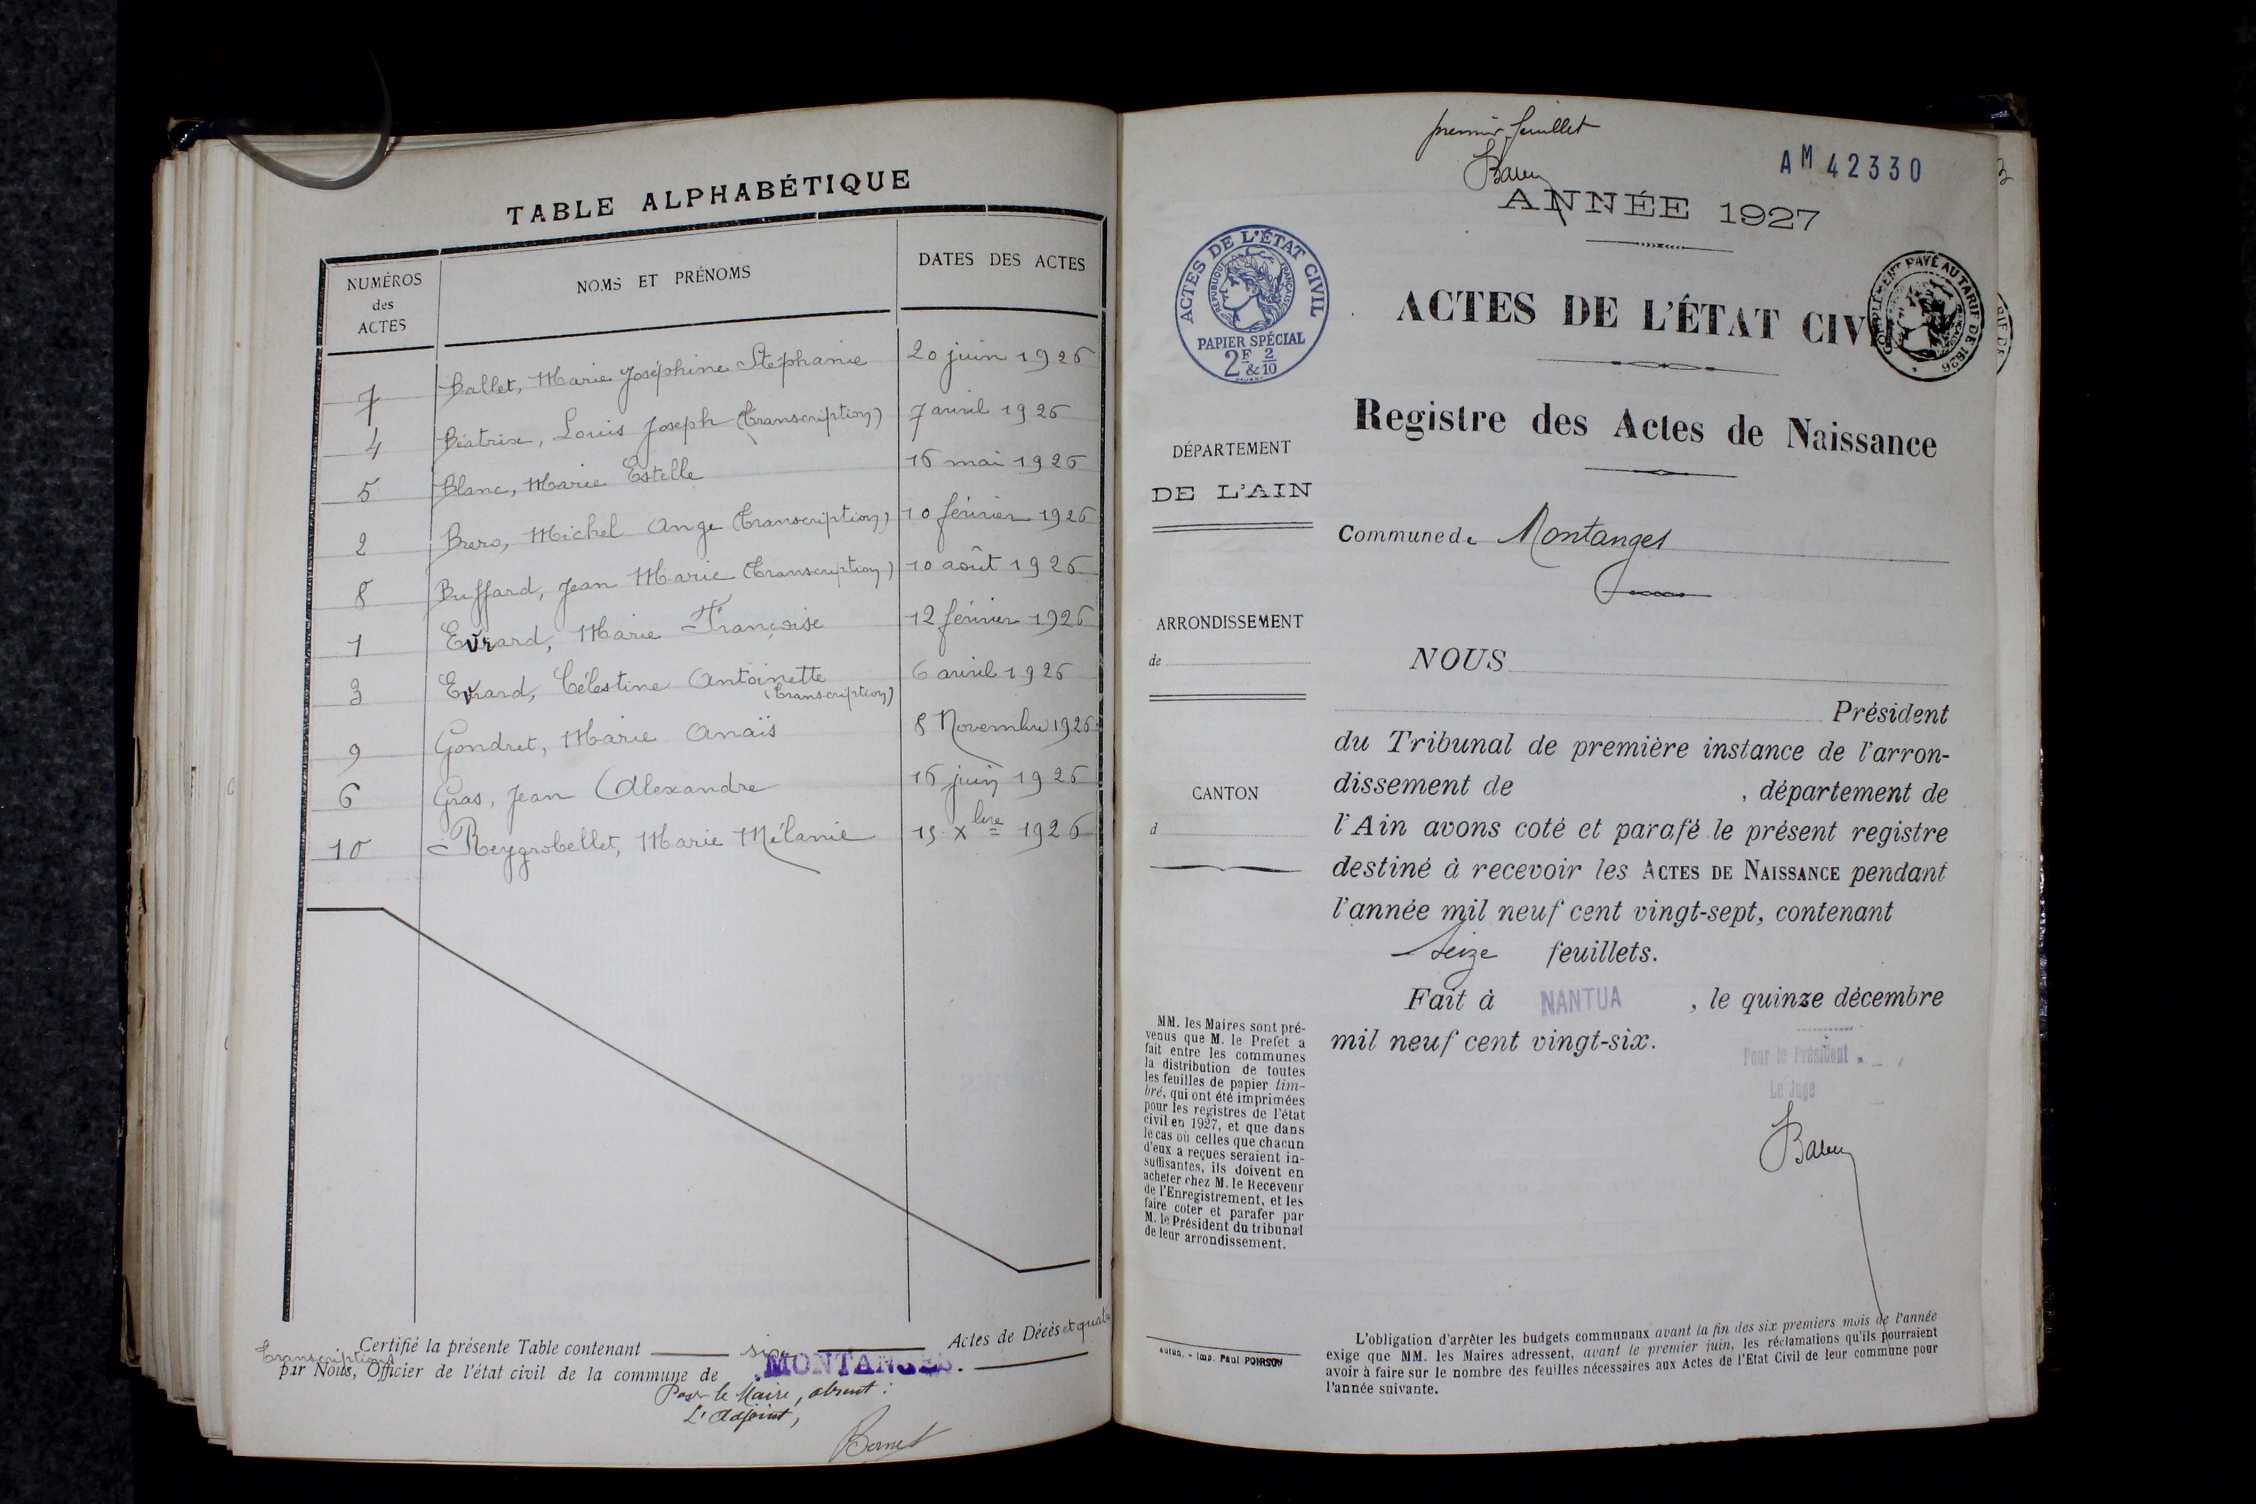 TABLE ALPHABÉTIQUE
NUMÉROS des ACTES
NOMS ET PRÉNOMS
DATES DES ACTES
7 Ballet, Marie Joséphine Stéphanie 20 juin 1926
4 Béatrix, Louis Joseph (Transcription) 7 avril 1926
5 Blanc, Marie Estelle 16 mai 1926
2 Brero, Michel Ange (Transcription) 10 février 1926
8 Buffard, Jean Marie (Transcription) 10 août 1926
1 Evrard, Marie Françoise 12 février 1926
3 Evrard, Célestine Antoinette 6 avril 1926
(Transcription)
9 Gondret, Marie Anaïs 8 Novembre 1926
6 Gras, Jean Alexandre 16 juin 1926
10 Reygrobellet, Marie Mélanie 15 Xbre 1926
Certifié la présente Table contenant six Actes de Décès et quatre
Transcriptions
par Nous, Officier de l'état civil de la commune de MONTANGES.
Pour le Maire, absent :
L'Adjoint,
premier feuillet
AM 42330
ANNÉE 1927
ACTES DE L'ÉTAT CIVIL
RÉPUBLIQUE FRANÇAISE
PAPIER SPÉCIAL
2F & 2/10
COMPLÉMENT PAYÉ AU TARIF DE 1926
ACTES DE L'ÉTAT CIVIL
Registre des Actes de Naissance
DÉPARTEMENT
DE L'AIN
Commune de Montanges
ARRONDISSEMENT
de
CANTON
d
NOUS
Président
du Tribunal de première instance de l'arron-
dissement de , département de
l'Ain avons coté et parafé le présent registre
destiné à recevoir les ACTES DE NAISSANCE pendant
l'année mil neuf cent vingt-sept, contenant
seize feuillets.
Fait à NANTUA , le quinze décembre
mil neuf cent vingt-six.
Pour le Président
Le Juge
MM. les Maires sont pré-
venus que M. le Prefet a
fait entre les communes
la distribution de toutes
les feuilles de papier tim-
bré, qui ont été imprimées
pour les registres de l'état
civil en 1927, et que dans
le cas où celles que chacun
d'eux a reçues seraient in-
suffisantes, ils doivent en
acheter chez M. le Receveur
de l'Enregistrement, et les
faire coter et parafer par
M. le Président du tribunal
de leur arrondissement.
Autun. - Imp. Paul POIRSON
L'obligation d'arrêter les budgets communaux avant la fin des six premiers mois de l'année
exige que MM. les Maires adressent, avant le premier juin, les réclamations qu'ils pourraient
avoir à faire sur le nombre des feuilles nécessaires aux Actes de l'Etat Civil de leur commune pour
l'année suivante.